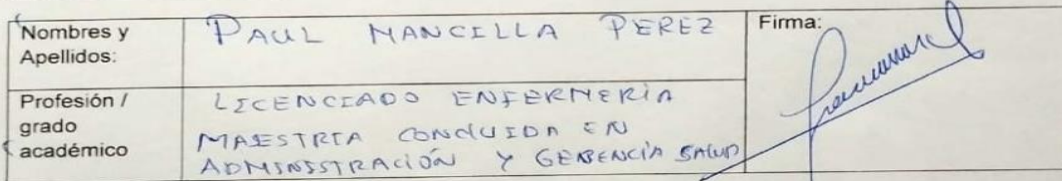 Nombres y Apellidos:
PAUL MANCILLA PEREZ
Firma:
Profesión / grado académico
LICENCIADO ENFERMERÍA
MAESTRIA CONCLUIDA EN
ADMINISTRACIÓN Y GERENCIA SALUD